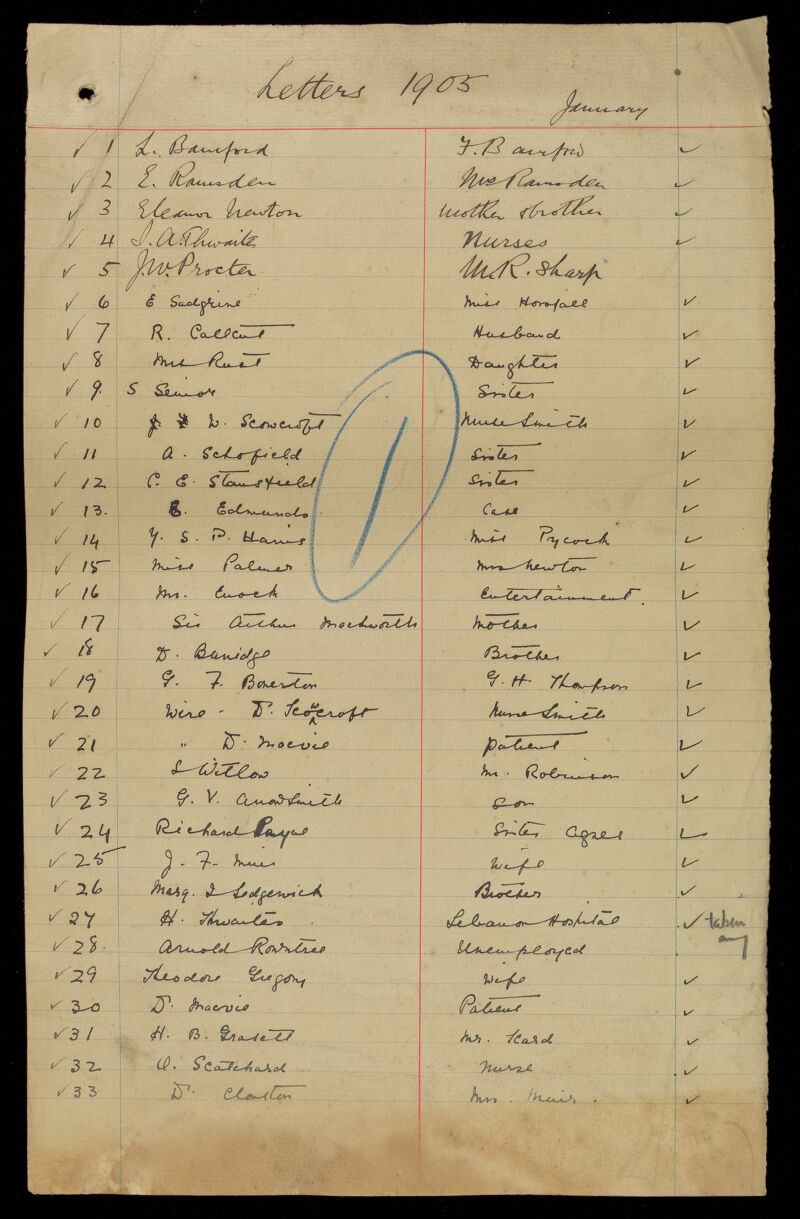 Letters 1905
January
✓ 1 L. Bamford F. Bamford ✓
✓ 2 E. Ramsden Mrs Ramsden ✓
✓ 3 Eleanor Newton Mother & brother ✓
✓ 4 J. A. Thwaite Nurses ✓
✓ 5 J. W. Procter M. R. Sharp
✓ 6 E Sadgrine Miss Horsfall ✓
✓ 7 R. Callcut Husband ✓
✓ 8 Mrs Rust Daughter ✓
✓ 9. S Senior Sister ✓
✓ 10 W. Scowcroft Nurse Smith ✓
✓ 11 A. Schofield Sister ✓
✓ 12 C. E. Stansfield Sister ✓
✓ 13. E. Edmunds Case ✓
✓ 14 Y. S. D. Harris Miss Pycock ✓
✓ 15 Miss Palmer Mrs Newton ✓
✓ 16 Mr. Enock Entertainment. ✓
✓ 17 Sir Arthur Mackworth Mother ✓
✓ 18 D. Burridge Brother ✓
✓ 19 G. F. Bowerton G. H. Thompson ✓
✓ 20 Wire - Dr. Scowcroft Nurse Smith ✓
✓ 21 " Dr. Macvie patient ✓
✓ 22 S Witlow Mr. Robinson ✓
✓ 23 G. V. Arrowsmith Son ✓
✓ 24 Richard Payne Sister Agnes ✓
✓ 25 J. F. Muir Wife ✓
✓ 26 Marg. I Sedgewick Brother ✓
✓ 27 H. Thwaites Lebanon Hospital ✓ taken
✓ 28. Arnold Rowntree Unemployed
✓ 29 Theodore Gregory Wife ✓
✓ 30 Dr. Macvie Patient ✓
✓ 31 H. B. Grasett Mr. Kard ✓
✓ 32 O. Scatchard Nurse ✓
✓ 33 Dr. Clouston Mrs. Muir. ✓
1